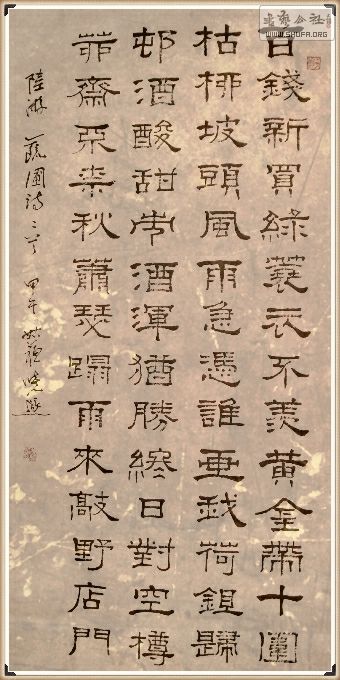 百錢新買綠蓑衣不羨黃金帶十圍
枯柳坡頭風雨急憑誰畫我荷鉏歸
邨酒酸甜市酒渾猶勝終日對空樽
茆齋不柰秋蕭瑟蹋雨來敲野店門
陸游蔬圃詩二首 甲午
书艺公社
WWW.SHUFA.ORG